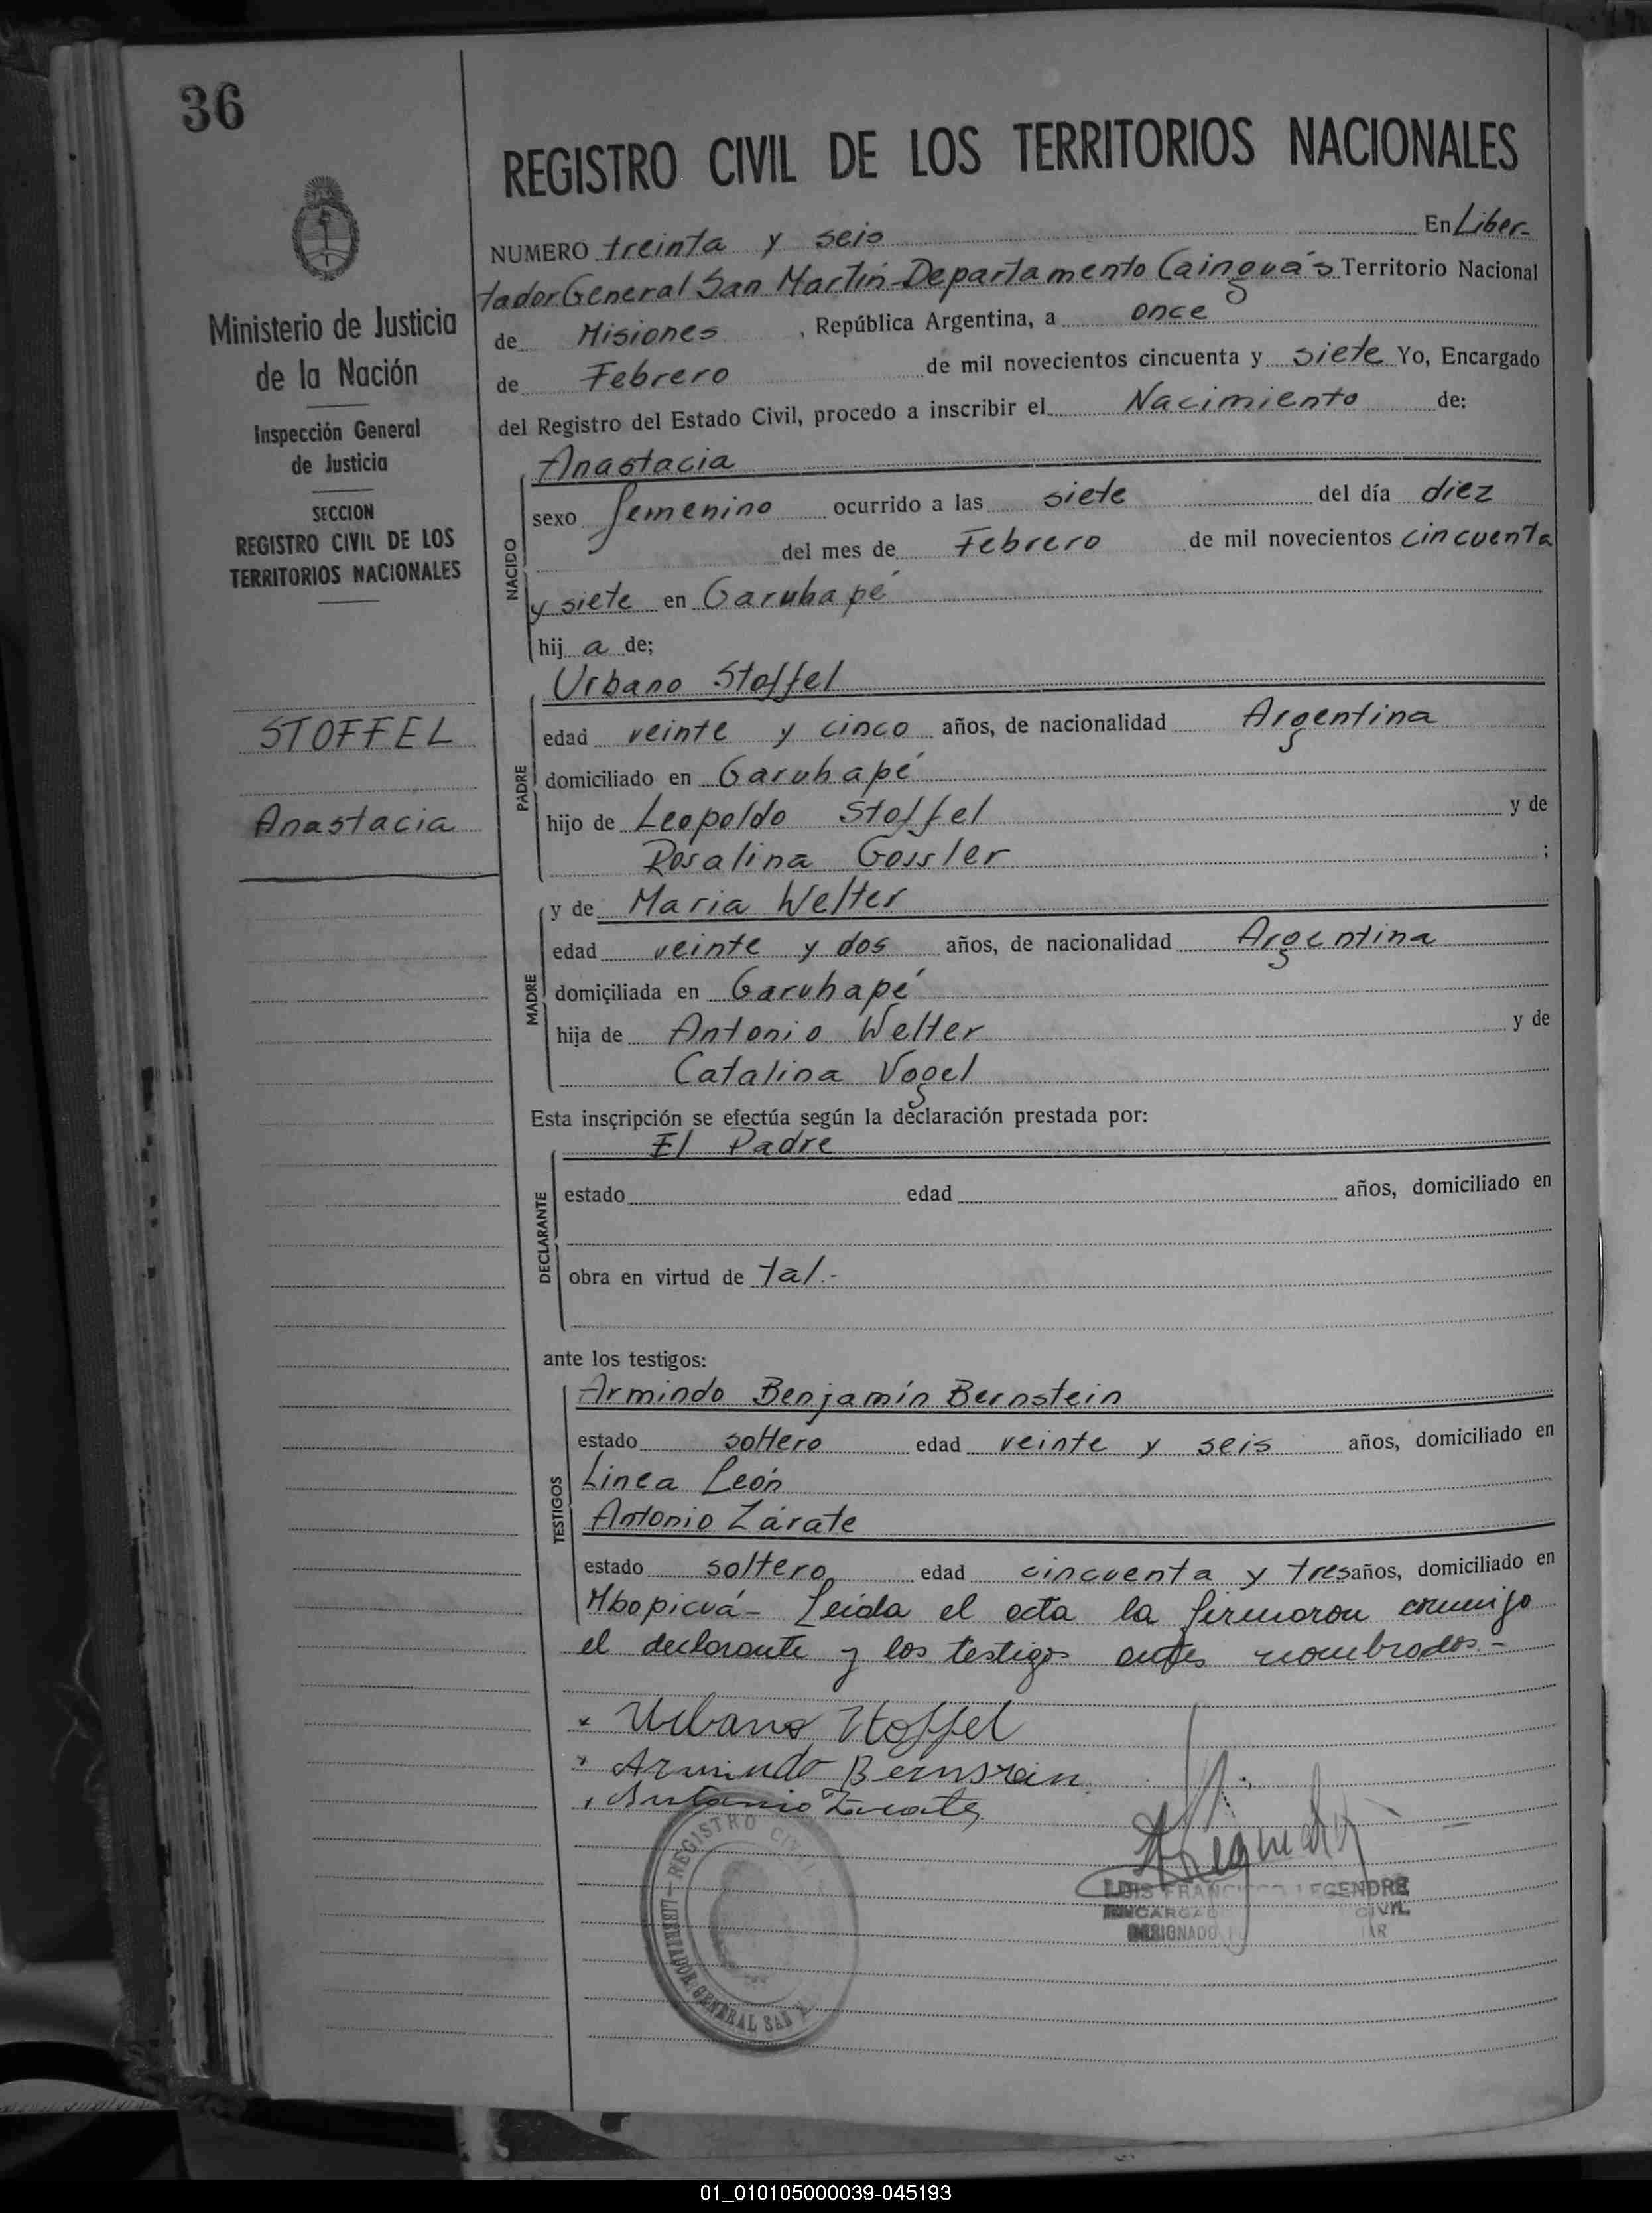 36
REGISTRO CIVIL DE LOS TERRITORIOS NACIONALES
Ministerio de Justicia
de la Nación
Inspección General
de Justicia
SECCION
REGISTRO CIVIL DE LOS
TERRITORIOS NACIONALES
STOFFEL
Anastacia
NUMERO treinta y seis En Liber-
tador General San Martín-Departamento Cainguá's Territorio Nacional
de Misiones, República Argentina, a once
de Febrero de mil novecientos cincuenta y siete Yo, Encargado
del Registro del Estado Civil, procedo a inscribir el Nacimiento de:
NACIDO
Anastacia
sexo femenino ocurrido a las siete del día diez
del mes de Febrero de mil novecientos cincuenta
y siete en Garuhapé
hij a de;
PADRE
Urbano Stoffel
edad veinte y cinco años, de nacionalidad Argentina
domiciliado en Garuhapé
hijo de Leopoldo Stoffel y de
Rosalina Gossler ;
MADRE
y de Maria Welter
edad veinte y dos años, de nacionalidad Argentina
domiciliada en Garuhapé
hija de Antonio Welter y de
Catalina Vogel
Esta inscripción se efectúa según la declaración prestada por:
DECLARANTE
El Padre
estado edad años, domiciliado en
obra en virtud de tal.-
ante los testigos:
TESTIGOS
Armindo Benjamín Bernstein
estado soltero edad veinte y seis años, domiciliado en
Linea León
Antonio Zárate
estado soltero edad cincuenta y tres años, domiciliado en
Mbopicuá- Leida el acta la firmaron conmigo
el declarante y los testigos antes nombrados.-
Urbano Stoffel
Armindo Bernstein
Antonio Zarate
REGISTRO CIVIL
LIBERTADOR GENERAL SAN M
LUIS FRANCISCO LEGENDRE
ENCARGAD CIVIL
DESIGNADO
01_010105000039-045193